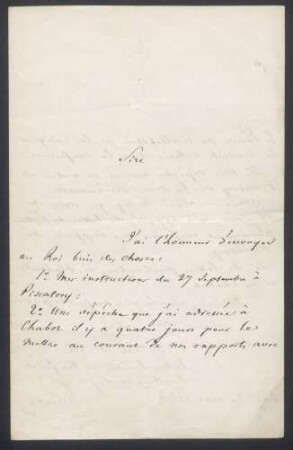 Sire
J'ai l'honneur d'envoyer
au Roi bien des choses:
1º Mes instructions du 27 Septembre à
Piscatory;
2º Une dépêche que j'ai adressée à
Chabot il y a quatre jours pour le
mettre au courant de nos rapports avec